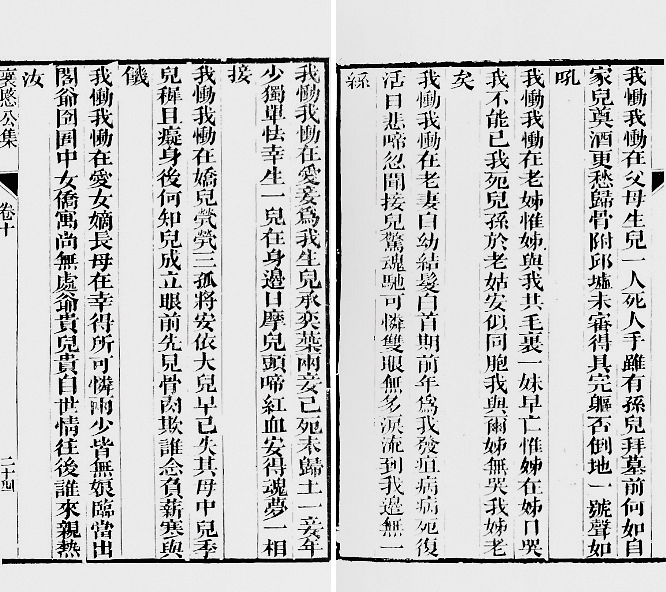 我慟我慟在父母生兒一人死人手雖有孫兒拜墓前何如自
家兒奠酒更愁歸骨附邱墟未審得具完軀否倒地一號聲如
吼
我慟我慟在老姊惟姊與我共毛裏一妹早亡惟姊在姊日哭
我不能已我死兒孫於老姑安似同胞我與爾姊無哭我姊老
矣
我慟我慟在老妻自幼結髮白首期前年為我發疽病病死復
活日悲啼忽聞接兒驚魂馳可憐雙眼無多淚流到我邊無一
絲
我慟我慟在愛妾為我生兒承奕葉兩妾已死未歸土一妾年
少獨單怯幸生一兒在身邊日摩兒頭啼紅血安得魂夢一相
接
我慟我慟在嬌兒煢煢三孤將安依大兒早已失其母中兒季
兒稺且癡身後何知兒成立眼前先見骨肉欺誰念負薪寒與
饑
我慟我慟在愛女嫡長母在幸得所可憐兩少皆無娘臨當出
閣爺囹圄中女僑寓尚無處爺貴兒貴自世情往後誰來親熱
汝
襄愍公集
卷十
二十四